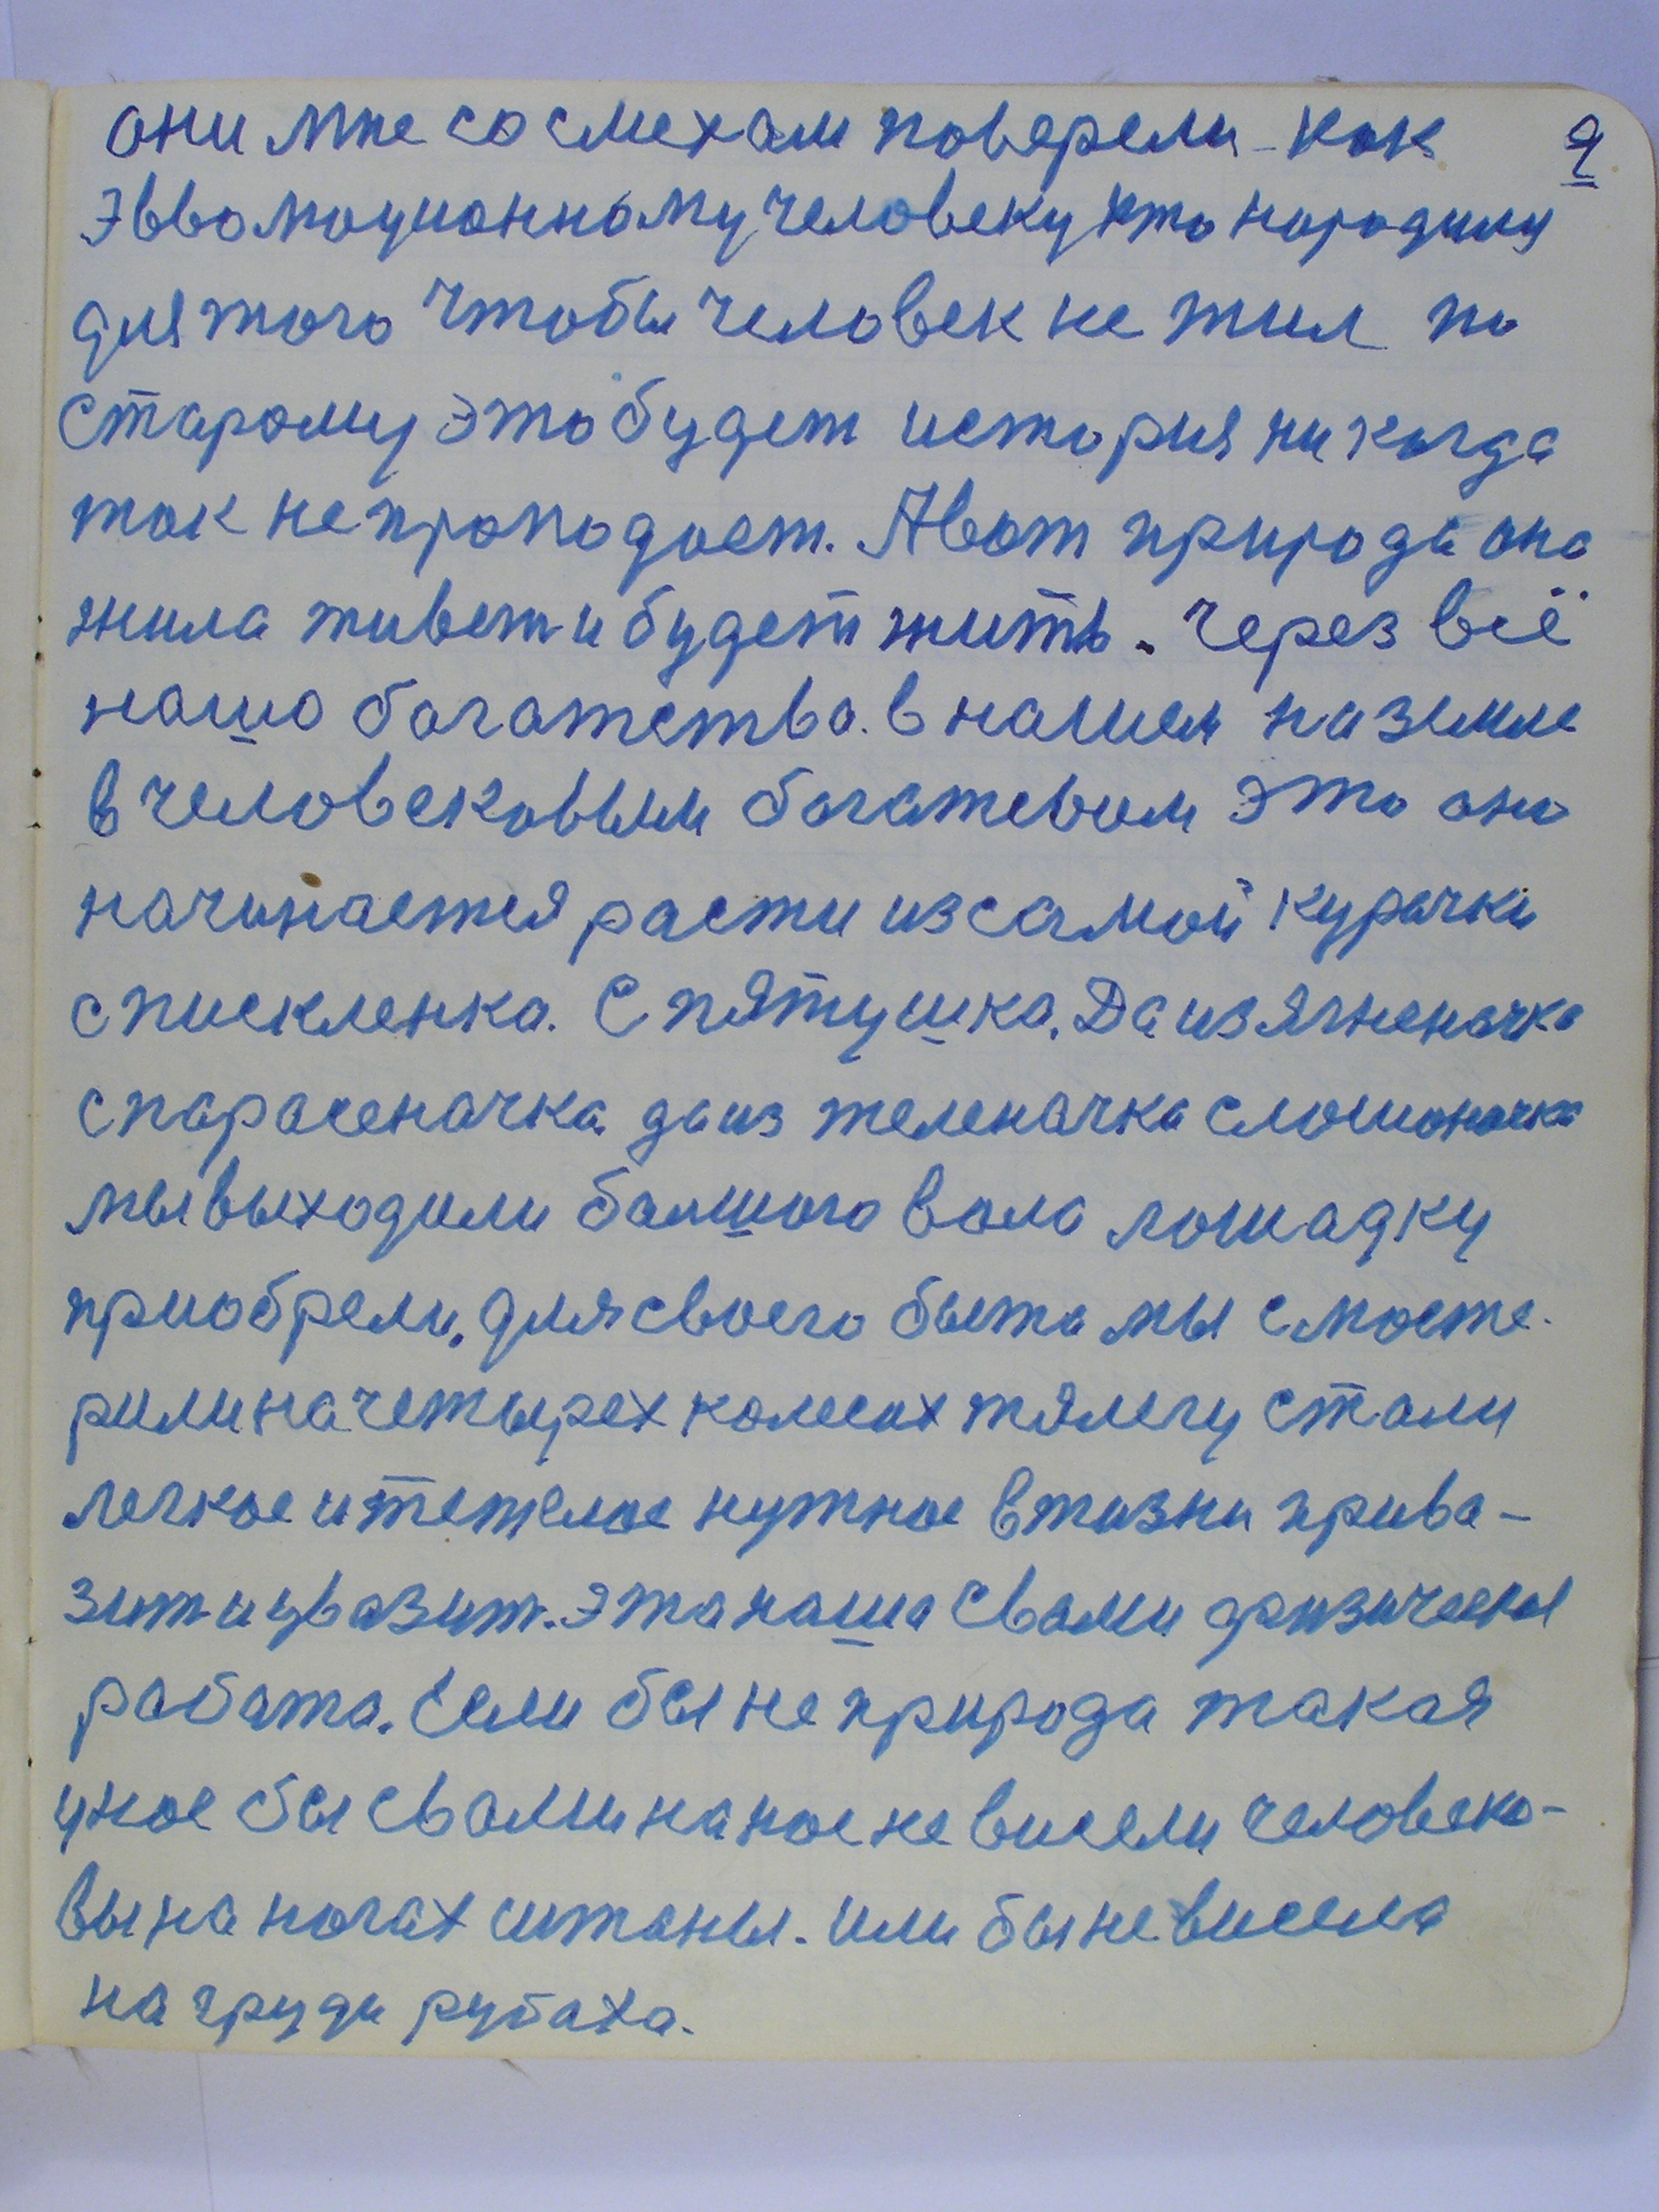 они мне со смехам поверели как 9
эвволюционному человеку хто народилу
для того чтобы человек не жил по
старому это будет история никогда
так не пропадает. А вот природа она
жила живет и будет жить. Через всё
нашо богатство. в нашем на земле
в человековым богатевом это оно
начинается расти из самой курачки
с писклёнка. С пятушка. Да из ягненачка
с парасеначка да из теленачка с лошоночка
мы выходили балшого вола лошадку
приобрели, для своего быта мы смосте-
рили на четырех колесах тялегу стали
легкое и тежелое нужное в жизни прива-
зит и увазит. Эта наша свами физическая
работа. Если бы не природа такая
у нас бы свами на нас не висели человеко-
вы на ногах штаны. или бы не висела
на груди рубаха.